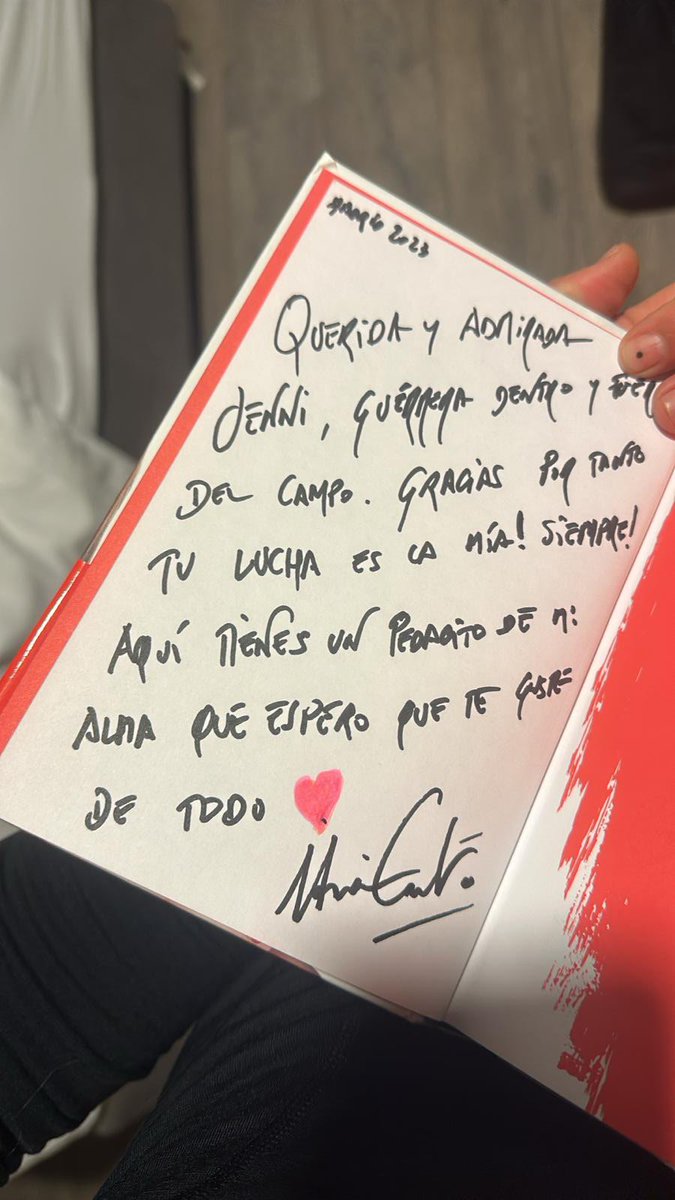 2023
QUERIDA Y ADMIRADA
JENNI, GUÉRRERA DENTRO Y FUER
DEL CAMPO. GRACIAS POR TANTO
TU LUCHA ES LA MÍA! SIEMPRE!
AQUÍ TIENES UN PEDACITO DE MI
ALMA QUE ESPERO QUE TE GUSTE
DE TODO